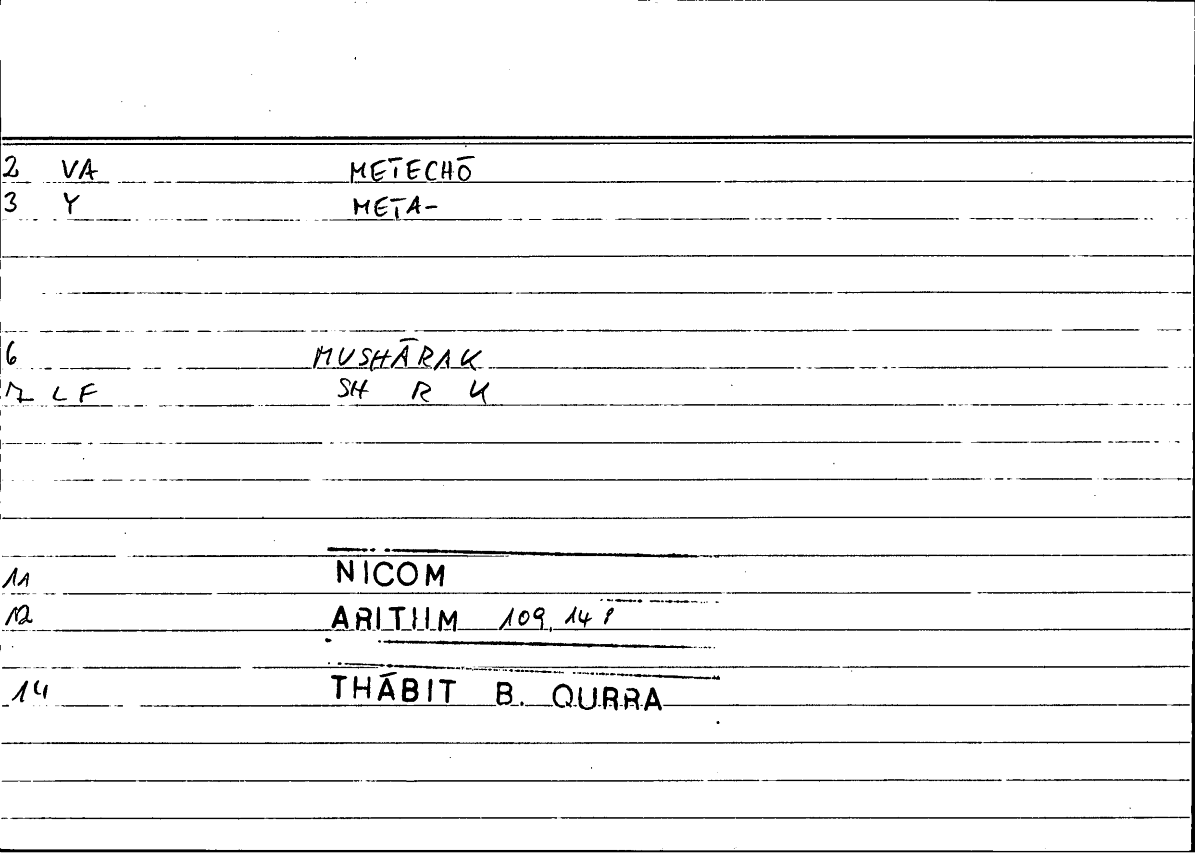 2 VA METECHŌ
3 Y META-
6 MUSHĀRAK
7 LF SH R K
11 NICOM
12 ARITHM 109, 14
14 THĀBIT B. QURRA